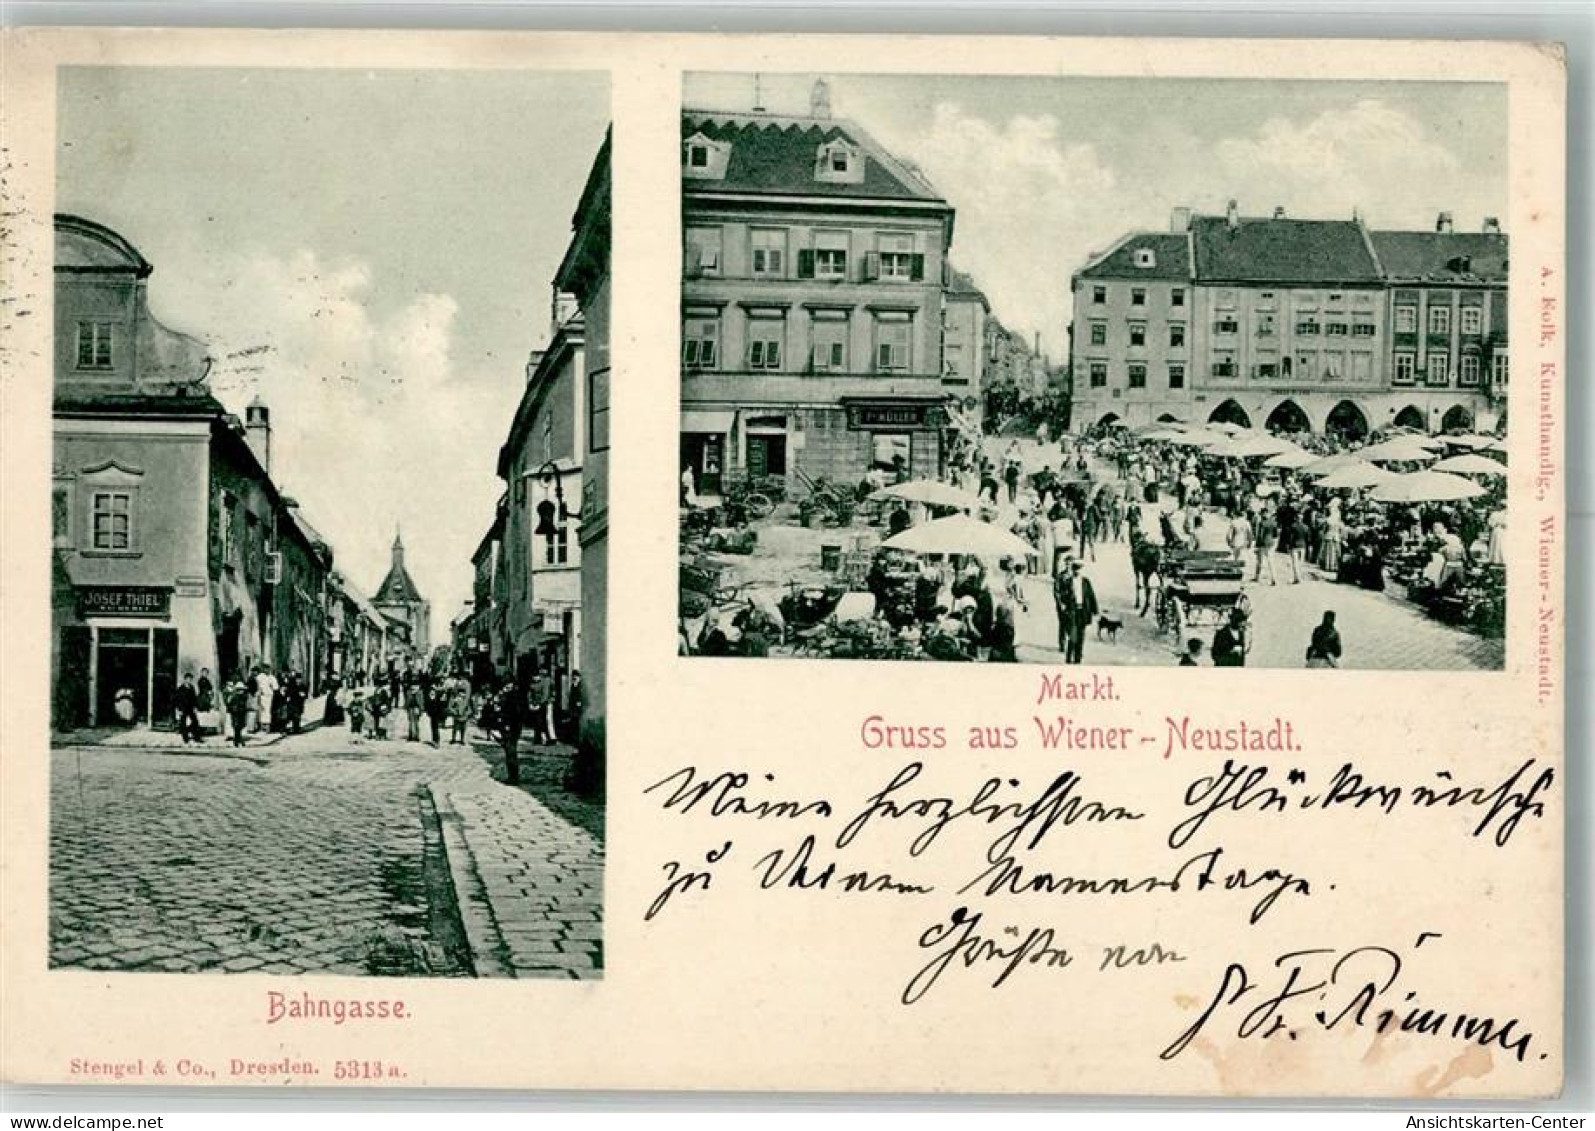 JOSEF THIEL
MÜLLER
Markt.
Gruss aus Wiener-Neustadt.
Meine herzlichsten Glückwünsche
zu Deinem Namenstage.
Grüße von
Fr.
Bahngasse.
Stengel & Co., Dresden. 5313 a.
A. Folk, Kunsthandlg., Wiener-Neustadt.
AnsichtsKarten-Center